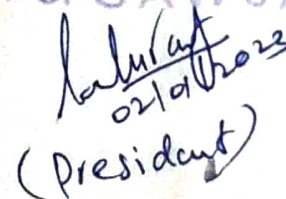 02/01/2023
(President)